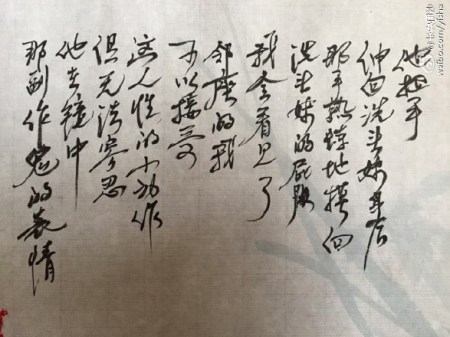 他把手
伸向洗头妹身后
那手熟练地摸向
洗头妹的屁股
我全看见了
邻座的我
可以接受
这人性的小动作
但无法容忍
他在镜中
那副作鬼的表情
weibo.com/yisha